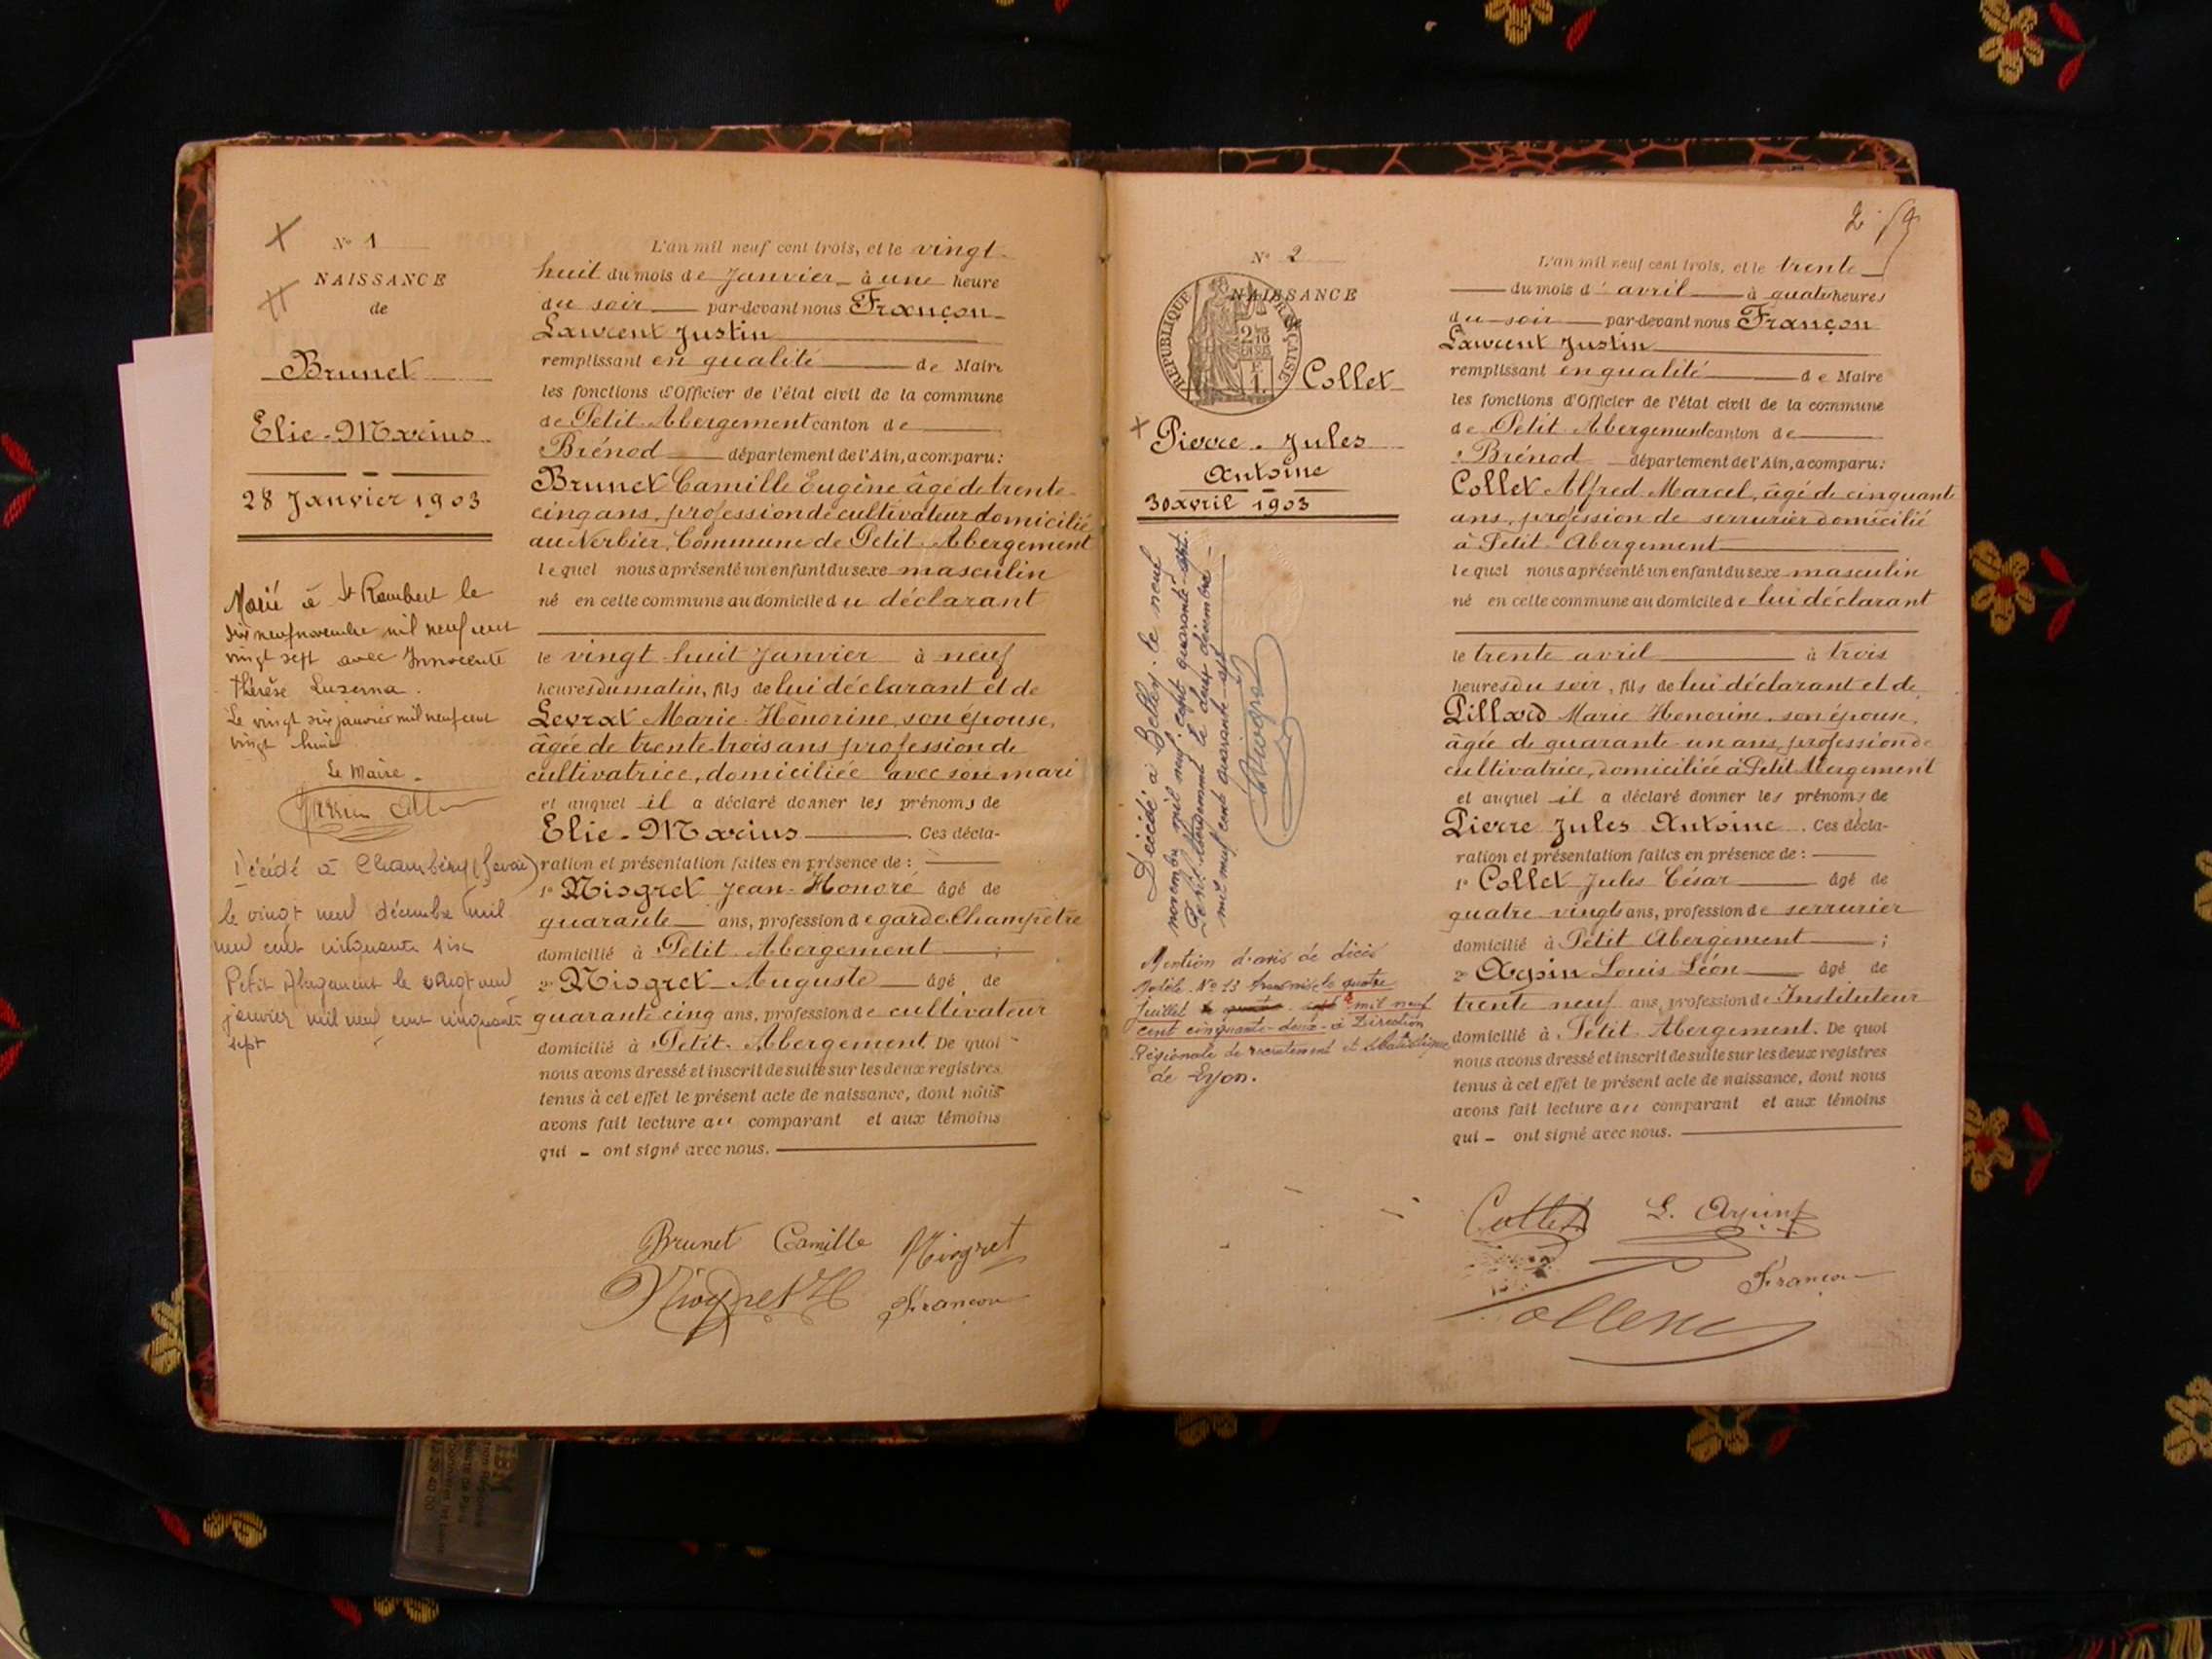 N° 1
NAISSANCE
de
Brunet
Elie-Marius
28 Janvier 1903
Marié à St Rambert le
dix neuf novembre mil neuf cent
vingt sept avec Innocente
Thérèse Luserna.
Le vingt six janvier mil neuf cent
vingt huit
Le Maire.
Décédé à Chambéry (Savoie)
le vingt neuf décembre mil
neuf cent cinquante six
Petit Abergement le vingt neuf
janvier mil neuf cent cinquante
sept
L'an mil neuf cent trois, et le vingt-
huit du mois de Janvier à une heure
du soir par-devant nous Françon
Laurent Justin
remplissant en qualité de Maire
les fonctions d'Officier de l'état civil de la commune
de Petit-Abergement canton de
Brénod département de l'Ain, a comparu:
Brunet Camille Eugène âgé de trente-
cinq ans, profession de cultivateur domicilié
au Nerbier, Commune de Petit-Abergement
lequel nous a présenté un enfant du sexe masculin
né en cette commune au domicile du déclarant
le vingt-huit Janvier à neuf
heures du matin, fils de lui déclarant et de
Levrat Marie-Honorine, son épouse,
âgée de trente-trois ans profession de
cultivatrice, domiciliée avec son mari
et auquel il a déclaré donner les prénoms de
Elie-Marius. Ces décla-
ration et présentation faites en présence de :
1° Miogret Jean-Honoré âgé de
quarante ans, profession de garde Champêtre
domicilié à Petit-Abergement ;
2° Miogret Auguste âgé de
quarante cinq ans, profession de cultivateur
domicilié à Petit-Abergement. De quoi
nous avons dressé et inscrit de suite sur les deux registres
tenus à cet effet le présent acte de naissance, dont nous
avons fait lecture au comparant et aux témoins
qui - ont signé avec nous.
Brunet Camille Miogret
Miogret H Françon
2
N° 2
NAISSANCE
de
REPUBLIQUE FRANÇAISE
Collet
Pierre-Jules
Antoine
30 avril 1903
Décédé à Belley le neuf
novembre mil neuf cent quarante-sept.
Petit Abergement le deux décembre
mil neuf cent quarante-sept
Mention d'avis de décès
Modèle N° 13 transmis le quatre
Juillet mil neuf
cent cinquante-deux à Direction
Régionale de recrutement et statistique
de Lyon.
L'an mil neuf cent trois, et le trente
du mois d'avril à quatre heures
du soir par-devant nous Françon
Laurent Justin
remplissant en qualité de Maire
les fonctions d'Officier de l'état civil de la commune
de Petit-Abergement canton de
Brénod département de l'Ain, a comparu:
Collet Alfred-Marcel, âgé de cinquante
ans, profession de serrurier domicilié
à Petit-Abergement
lequel nous a présenté un enfant du sexe masculin
né en cette commune au domicile de lui déclarant
le trente avril à trois
heures du soir, fils de lui déclarant et de
Pillard Marie Honorine, son épouse,
âgée de quarante-un ans, profession de
cultivatrice, domiciliée à Petit-Abergement
et auquel il a déclaré donner les prénoms de
Pierre Jules Antoine. Ces décla-
ration et présentation faites en présence de :
1° Collet Jules César âgé de
quatre-vingts ans, profession de serrurier
domicilié à Petit-Abergement ;
2° Arpin Louis Léon âgé de
trente neuf ans, profession de Instituteur
domicilié à Petit-Abergement. De quoi
nous avons dressé et inscrit de suite sur les deux registres
tenus à cet effet le présent acte de naissance, dont nous
avons fait lecture au comparant et aux témoins
qui - ont signé avec nous.
Collet L. Arpin
Françon